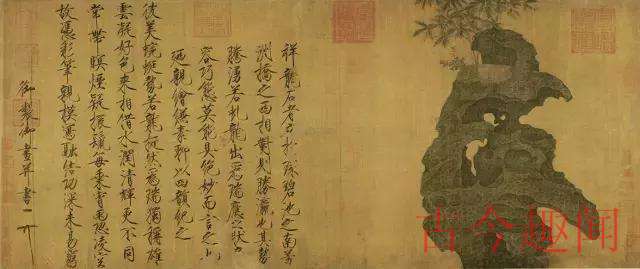 祥龍石者立於環碧池之南芳
洲橋之西相對則勝瀛也其勢
騰湧若虬龍出為瑞應之狀奇
容巧態莫能具絕妙而言之也
廼親繪縑素聊以四韻紀之
彼美蜿蜒勢若龍挺然為瑞獨稱雄
雲凝好色來相借水潤清輝更不同
常帶暝煙疑振鬣每乘宵雨恐凌空
故憑彩筆親模寫融結功深未易窮
御製御畫并書
古今趣闻